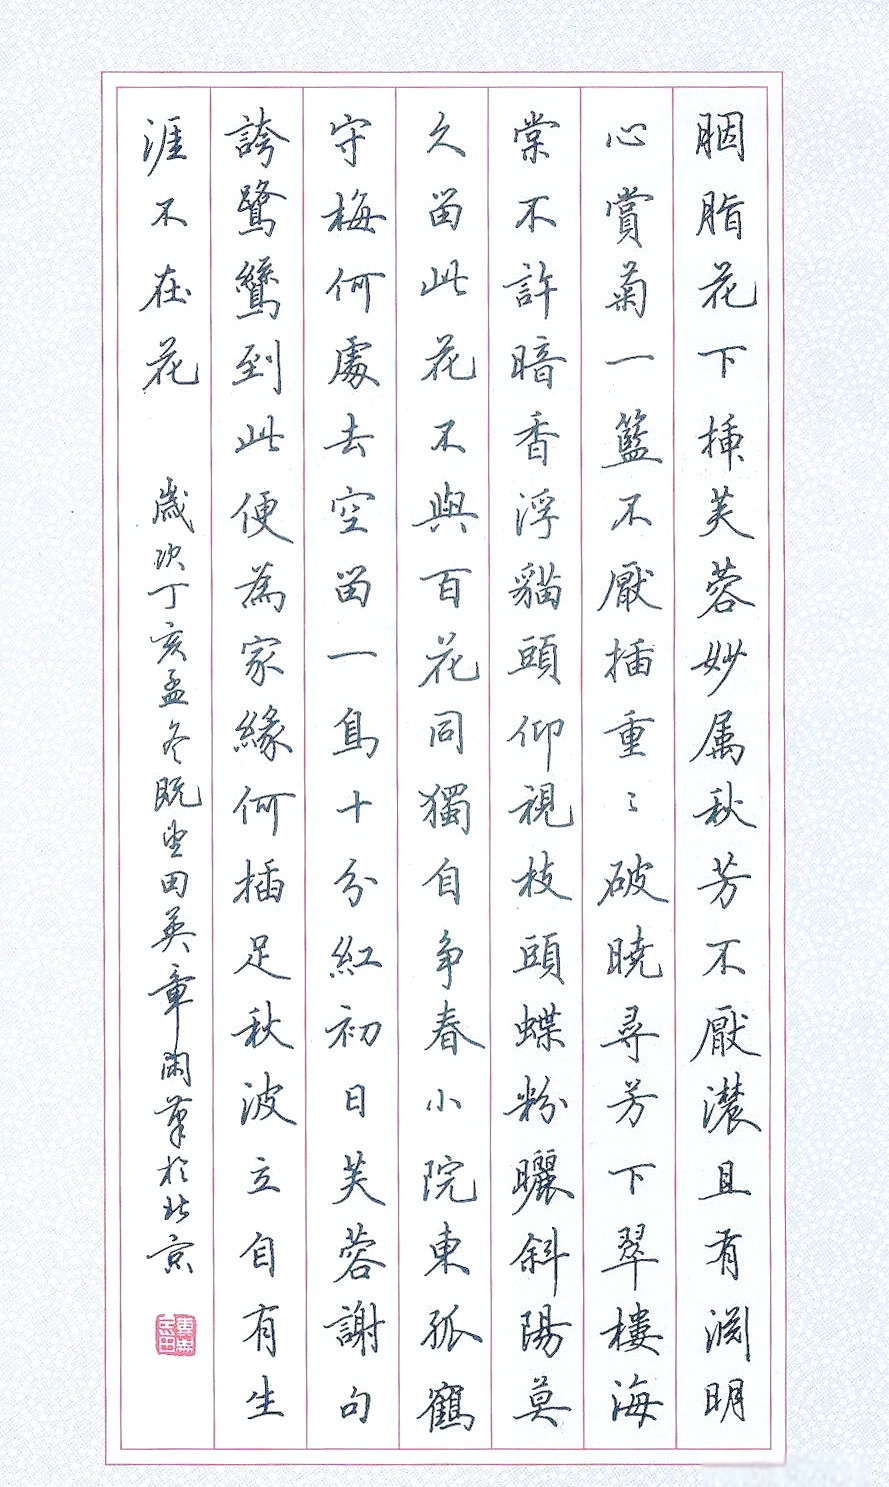 胭脂花下揷芙蓉妙属秋芳不厭濃且有淵明
心賞菊一籃不厭插重〻破曉尋芳下翠樓海
棠不許暗香浮貓頭仰視枝頭蝶粉曬斜陽莫
久留此花不與百花同獨自爭春小院東孤鶴
守梅何處去空留一鳥十分紅初日芙蓉謝句
誇鷺鷥到此便為家緣何插足秋波立自有生
涯不在花
歲次丁亥孟冬既望田英章閑筆於北京